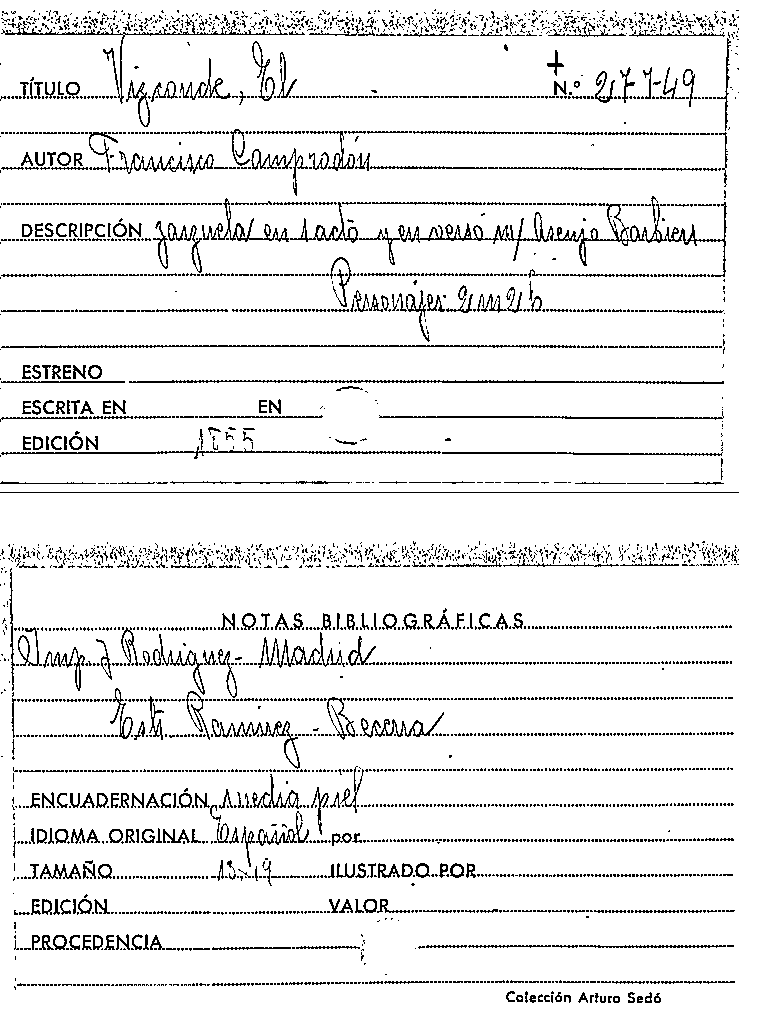 TÍTULO Vizconde, El N.º 277-49
AUTOR Francisco Camprodón
DESCRIPCIÓN zarzuela en 1 acto y en verso m/ Asenjo Barbieri
Personajes 2 m 2 h
ESTRENO
ESCRITA EN EN
EDICIÓN 1855
NOTAS BIBLIOGRÁFICAS
Imp J Rodriguez - Madrid
Ramirez - Becerra
ENCUADERNACIÓN media piel
IDIOMA ORIGINAL Español por
TAMAÑO 13x19 ILUSTRADO POR
EDICIÓN VALOR
PROCEDENCIA
Colección Arturo Sedó